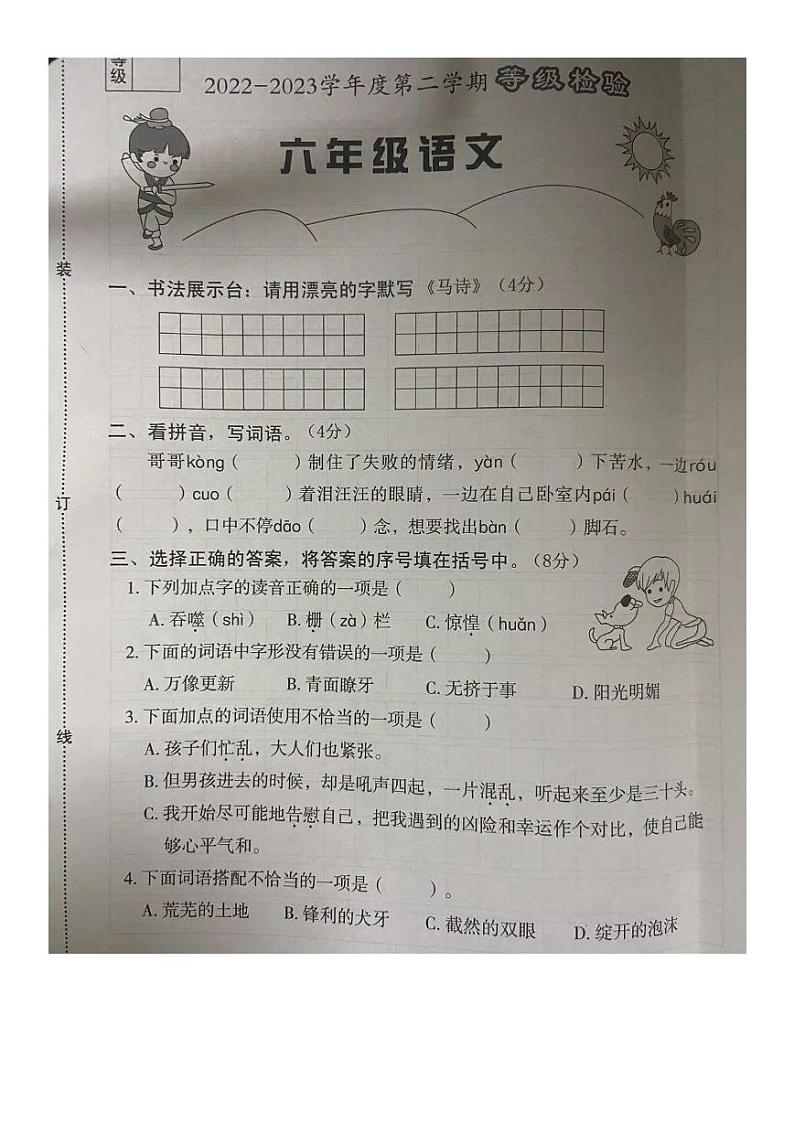 等级
2022-2023学年度第二学期 等级检验
六年级语文
一、书法展示台：请用漂亮的字默写《马诗》（4分）
装
二、看拼音，写词语。（4分）
哥哥kòng（ ）制住了失败的情绪，yàn（ ）下苦水，一边róu
（ ）cuo（ ）着泪汪汪的眼睛，一边在自己卧室内pái（ ）huái
订
（ ），口中不停dāo（ ）念，想要找出bàn（ ）脚石。
三、选择正确的答案，将答案的序号填在括号中。（8分）
1. 下列加点字的读音正确的一项是（ ）
A. 吞噬（shì） B. 栅（zà）栏 C. 惊惶（huǎn）
2. 下面的词语中字形没有错误的一项是（ ）
A. 万像更新 B. 青面瞭牙 C. 无挤于事 D. 阳光明媚
3. 下面加点的词语使用不恰当的一项是（ ）
线
A. 孩子们忙乱，大人们也紧张。
B. 但男孩进去的时候，却是吼声四起，一片混乱，听起来至少是三十头。
C. 我开始尽可能地告慰自己，把我遇到的凶险和幸运作个对比，使自己能
够心平气和。
4. 下面词语搭配不恰当的一项是（ ）。
A. 荒芜的土地 B. 锋利的犬牙 C. 截然的双眼 D. 绽开的泡沫